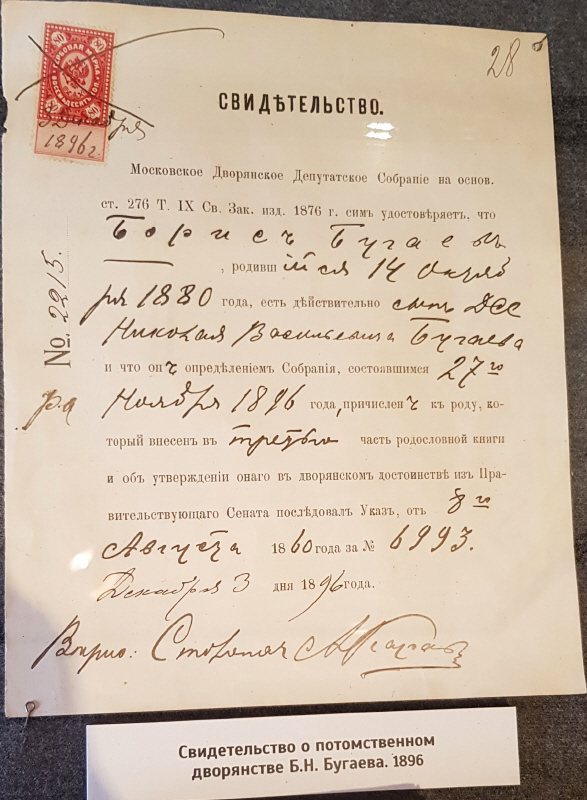 28
ГЕРБОВАЯ МАРКА
ВОСЕМЬДЕСЯТ КОП.
80 80
80 80
1896 г.
СВИДѢТЕЛЬСТВО.
Московское Дворянское Депутатское Собраніе на основ.
ст. 276 Т. IX Св. Зак. изд. 1876 г. симъ удостовѣряетъ, что
Борисъ Бугаевъ
, родившійся 14 Октяб
ря 1880 года, есть дѣйствительно сынъ ДСС
Николая Васильевича Бугаева
и что онъ опредѣленіемъ Собранія, состоявшимся 27го
Ноября 1896 года, причисленъ къ роду, ко-
торый внесенъ въ третью часть родословной книги
и объ утвержденіи онаго въ дворянском достоинствѣ изъ Пра-
вительствующаго Сената послѣдовалъ Указъ, отъ 8го
Августа 1860 года за № 6993.
Декабря 3 дня 1896 года.
№ 2215.
Свидетельство о потомственном
дворянстве Б.Н. Бугаева. 1896